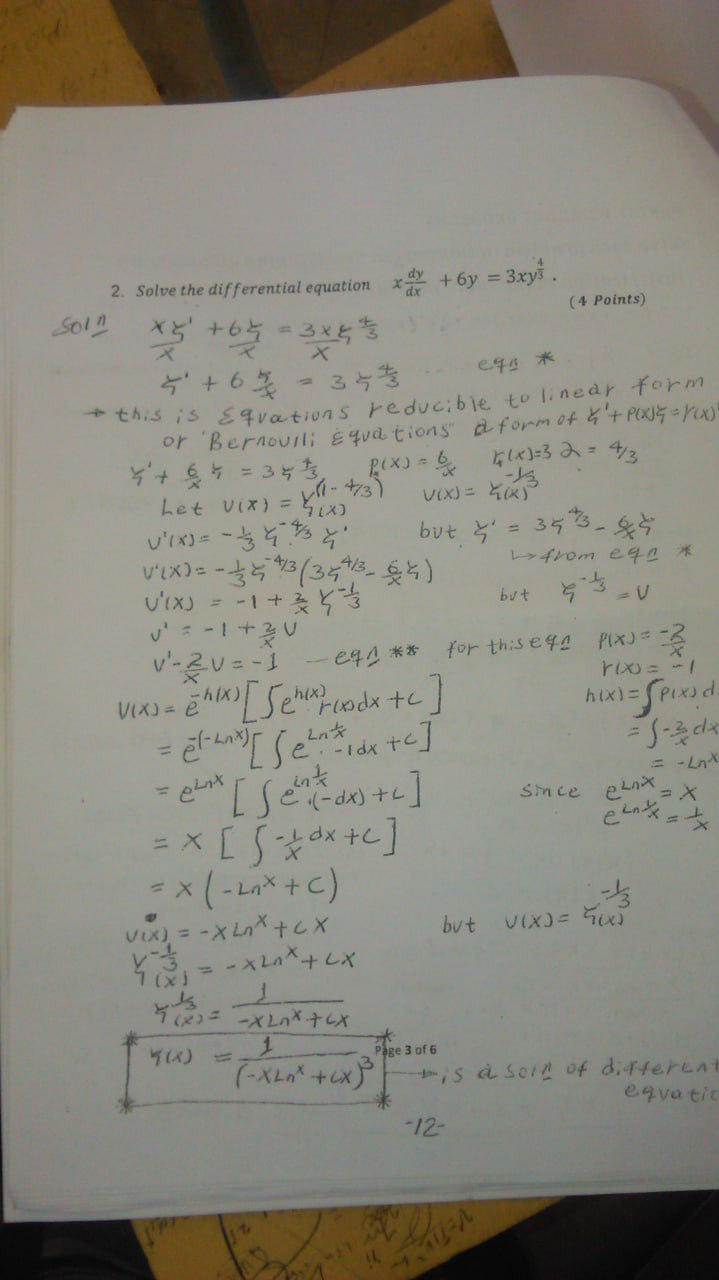 2. Solve the differential equation x dy/dx + 6y = 3xy^(4/3) .
(4 Points)
Soln xy'/x + 6y/x = 3xy^(4/3)/x
y' + 6 y/x = 3y^(4/3) eqn *
→ this is Equations reducible to linear form
or "Bernoulli Equations" a form of y'+P(x)y=r(x)y
y' + 6/x y = 3y^(4/3) P(x) = 6/x r(x)=3 2 = 4/3
Let U(x) = y(x)^(1-4/3) U(x) = y(x)^(-1/3)
U'(x) = -1/3 y^(-4/3) y' but y' = 3y^(4/3) - 6/x y
↳ from eqn *
U'(x) = -1/3 y^(-4/3) (3y^(4/3) - 6/x y)
U'(x) = -1 + 2/x y^(-1/3) but y^(-1/3) = U
U' = -1 + 2/x U
U' - 2/x U = -1 — eqn ** for this eqn P(x) = -2/x
r(x) = -1
U(x) = e^(-h(x)) [∫e^(h(x)) r(x)dx + C] h(x) = ∫P(x)d
= e^(-(-Lnx)) [∫e^(Ln 1/x) . -1dx + C] = ∫-2/x dx
= -Lnx
= e^(Lnx) [∫e^(Ln 1/x) .(-dx) + C] since e^(Lnx) = x
e^(Ln 1/x) = 1/x
= x [∫-1/x dx + C]
= x (-Lnx + C)
U(x) = -xLnx + Cx but U(x) = y(x)^(-1/3)
y(x)^(-1/3) = -xLnx + Cx
y(x)^(1/3) = 1/(-xLnx + Cx)
Page 3 of 6
y(x) = 1/(-xLnx + Cx)^3 → is a soln of different
equatio
-12-